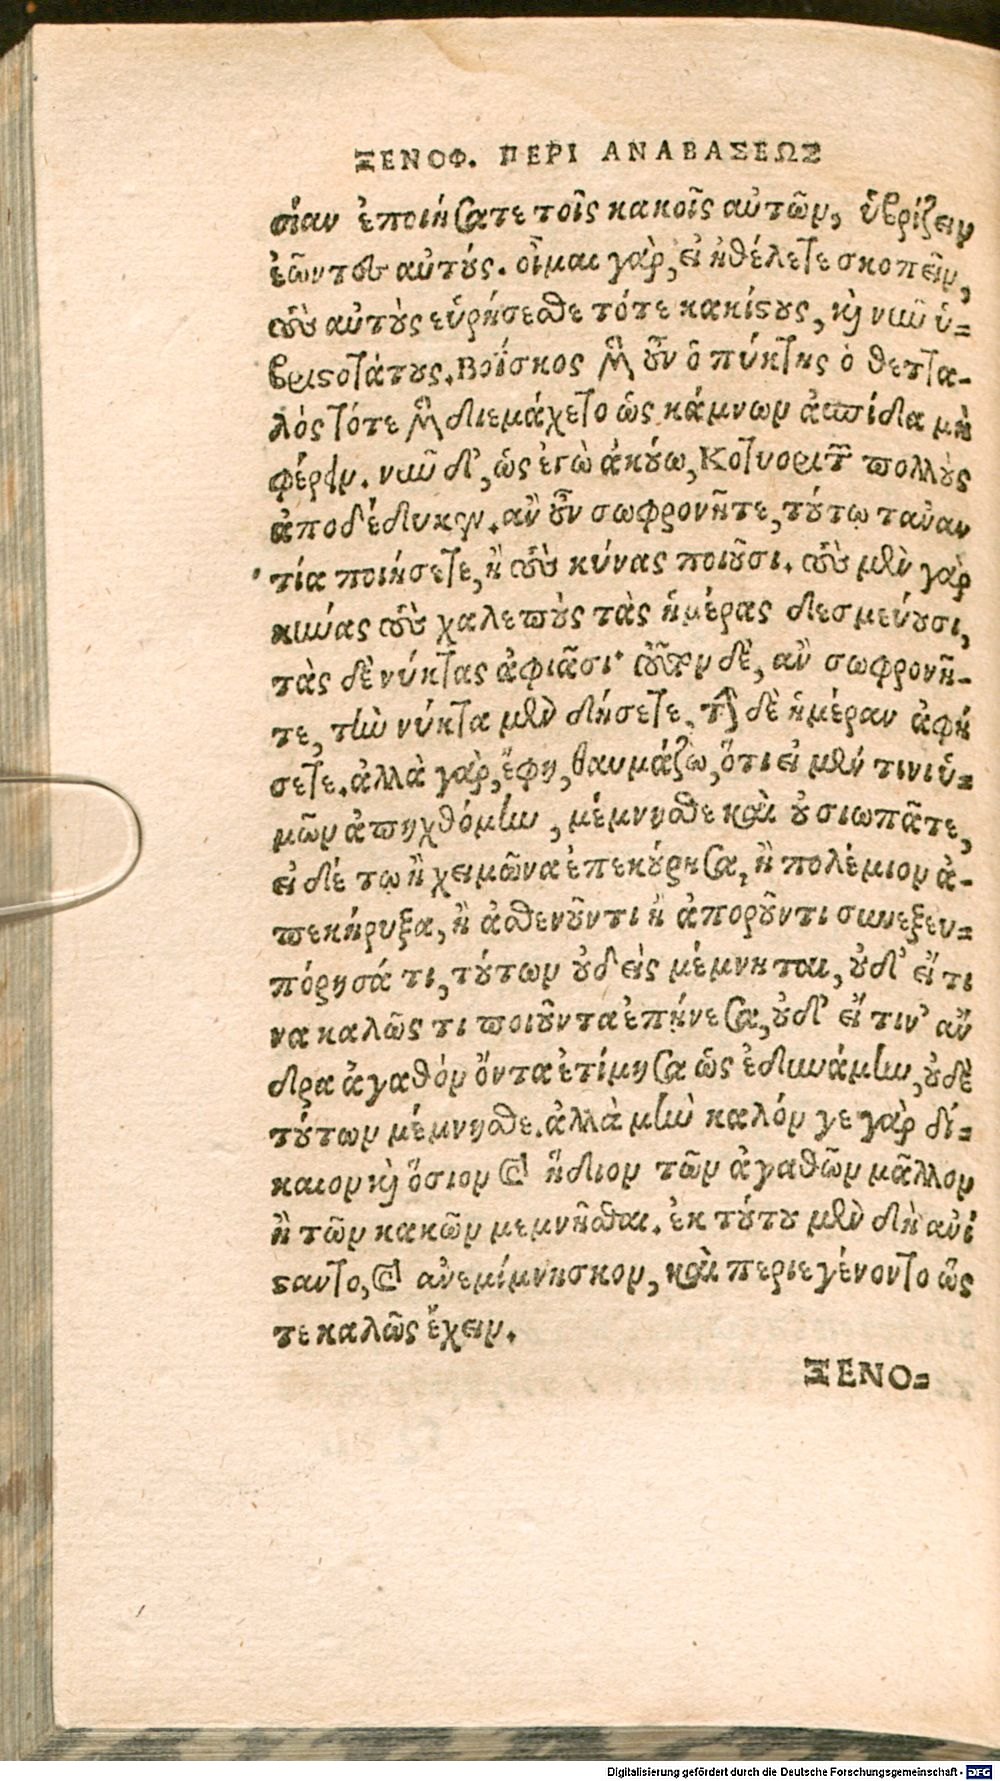 ΞΕΝΟΦ. ΠΕΡΙ ΑΝΑΒΑΣΕΩΣ
σίαν ἐποιήσατε τοῖς κακοῖς αὐτῶν, ὑβρίζειν
ἐῶντες αὐτούς. οἶμαι γὰρ, εἰ ἠθέλετε σκοπεῖν,
τοὺς αὐτοὺς εὑρήσεσθε τότε κακίστους, καὶ νῦν ὑ-
βριστοτάτους. Βοΐσκος μὲν οὖν ὁ πύκτης ὁ θεττα-
λὸς τότε μὲν διεμάχετο ὡς κάμνων ἀσπίδα μὴ
φέρειν. νῦν δ', ὡς ἐγὼ ἀκούω, Κοτυοριτῶν πολλοὺς
ἀποδέδυκεν. ἂν οὖν σωφρονῆτε, τούτῳ ταναν
τία ποιήσετε, ἢ τοὺς κύνας ποιοῦσι. τοὺς μὲν γὰρ
κύνας τοὺς χαλεποὺς τὰς ἡμέρας δεσμεύουσι,
τὰς δὲ νύκτας ἀφιᾶσι· τοῦτον δὲ, ἂν σωφρονῆ-
τε, τὴν νύκτα μὲν δήσετε, τὴν δὲ ἡμέραν ἀφή
σετε. ἀλλὰ γὰρ, ἔφη, θαυμάζω, ὅτι εἰ μέν τινι ὑ-
μῶν ἀπηχθόμην, μέμνησθε καὶ οὐ σιωπᾶτε,
εἰ δέ τῳ ἢ χειμῶνα ἐπεκούρησα, ἢ πολέμιον ἀ-
πεκήρυξα, ἢ ἀσθενοῦντι ἢ ἀποροῦντι συνεξευ-
πόρησά τι, τούτων οὐδεὶς μέμνηται, οὐδ' εἴ τι
να καλῶς τι ποιοῦντα ἐπῄνεσα, οὐδ' εἴ τιν' ἄν
δρα ἀγαθὸν ὄντα ἐτίμησα ὡς ἐδυνάμην, οὐδὲ
τούτων μέμνησθε. ἀλλὰ μὴν καλόν γε γὰρ δί-
καιον καὶ ὅσιον καὶ ἥδιον τῶν ἀγαθῶν μᾶλλον
ἢ τῶν κακῶν μεμνῆσθαι. ἐκ τούτου μὲν δὴ ἀνί
σταντο, καὶ ἀνεμίμνησκον, καὶ περιεγένοντο ὥς
τε καλῶς ἔχειν.
ΞΕΝΟ-
Digitalisierung gefördert durch die Deutsche Forschungsgemeinschaft - DFG